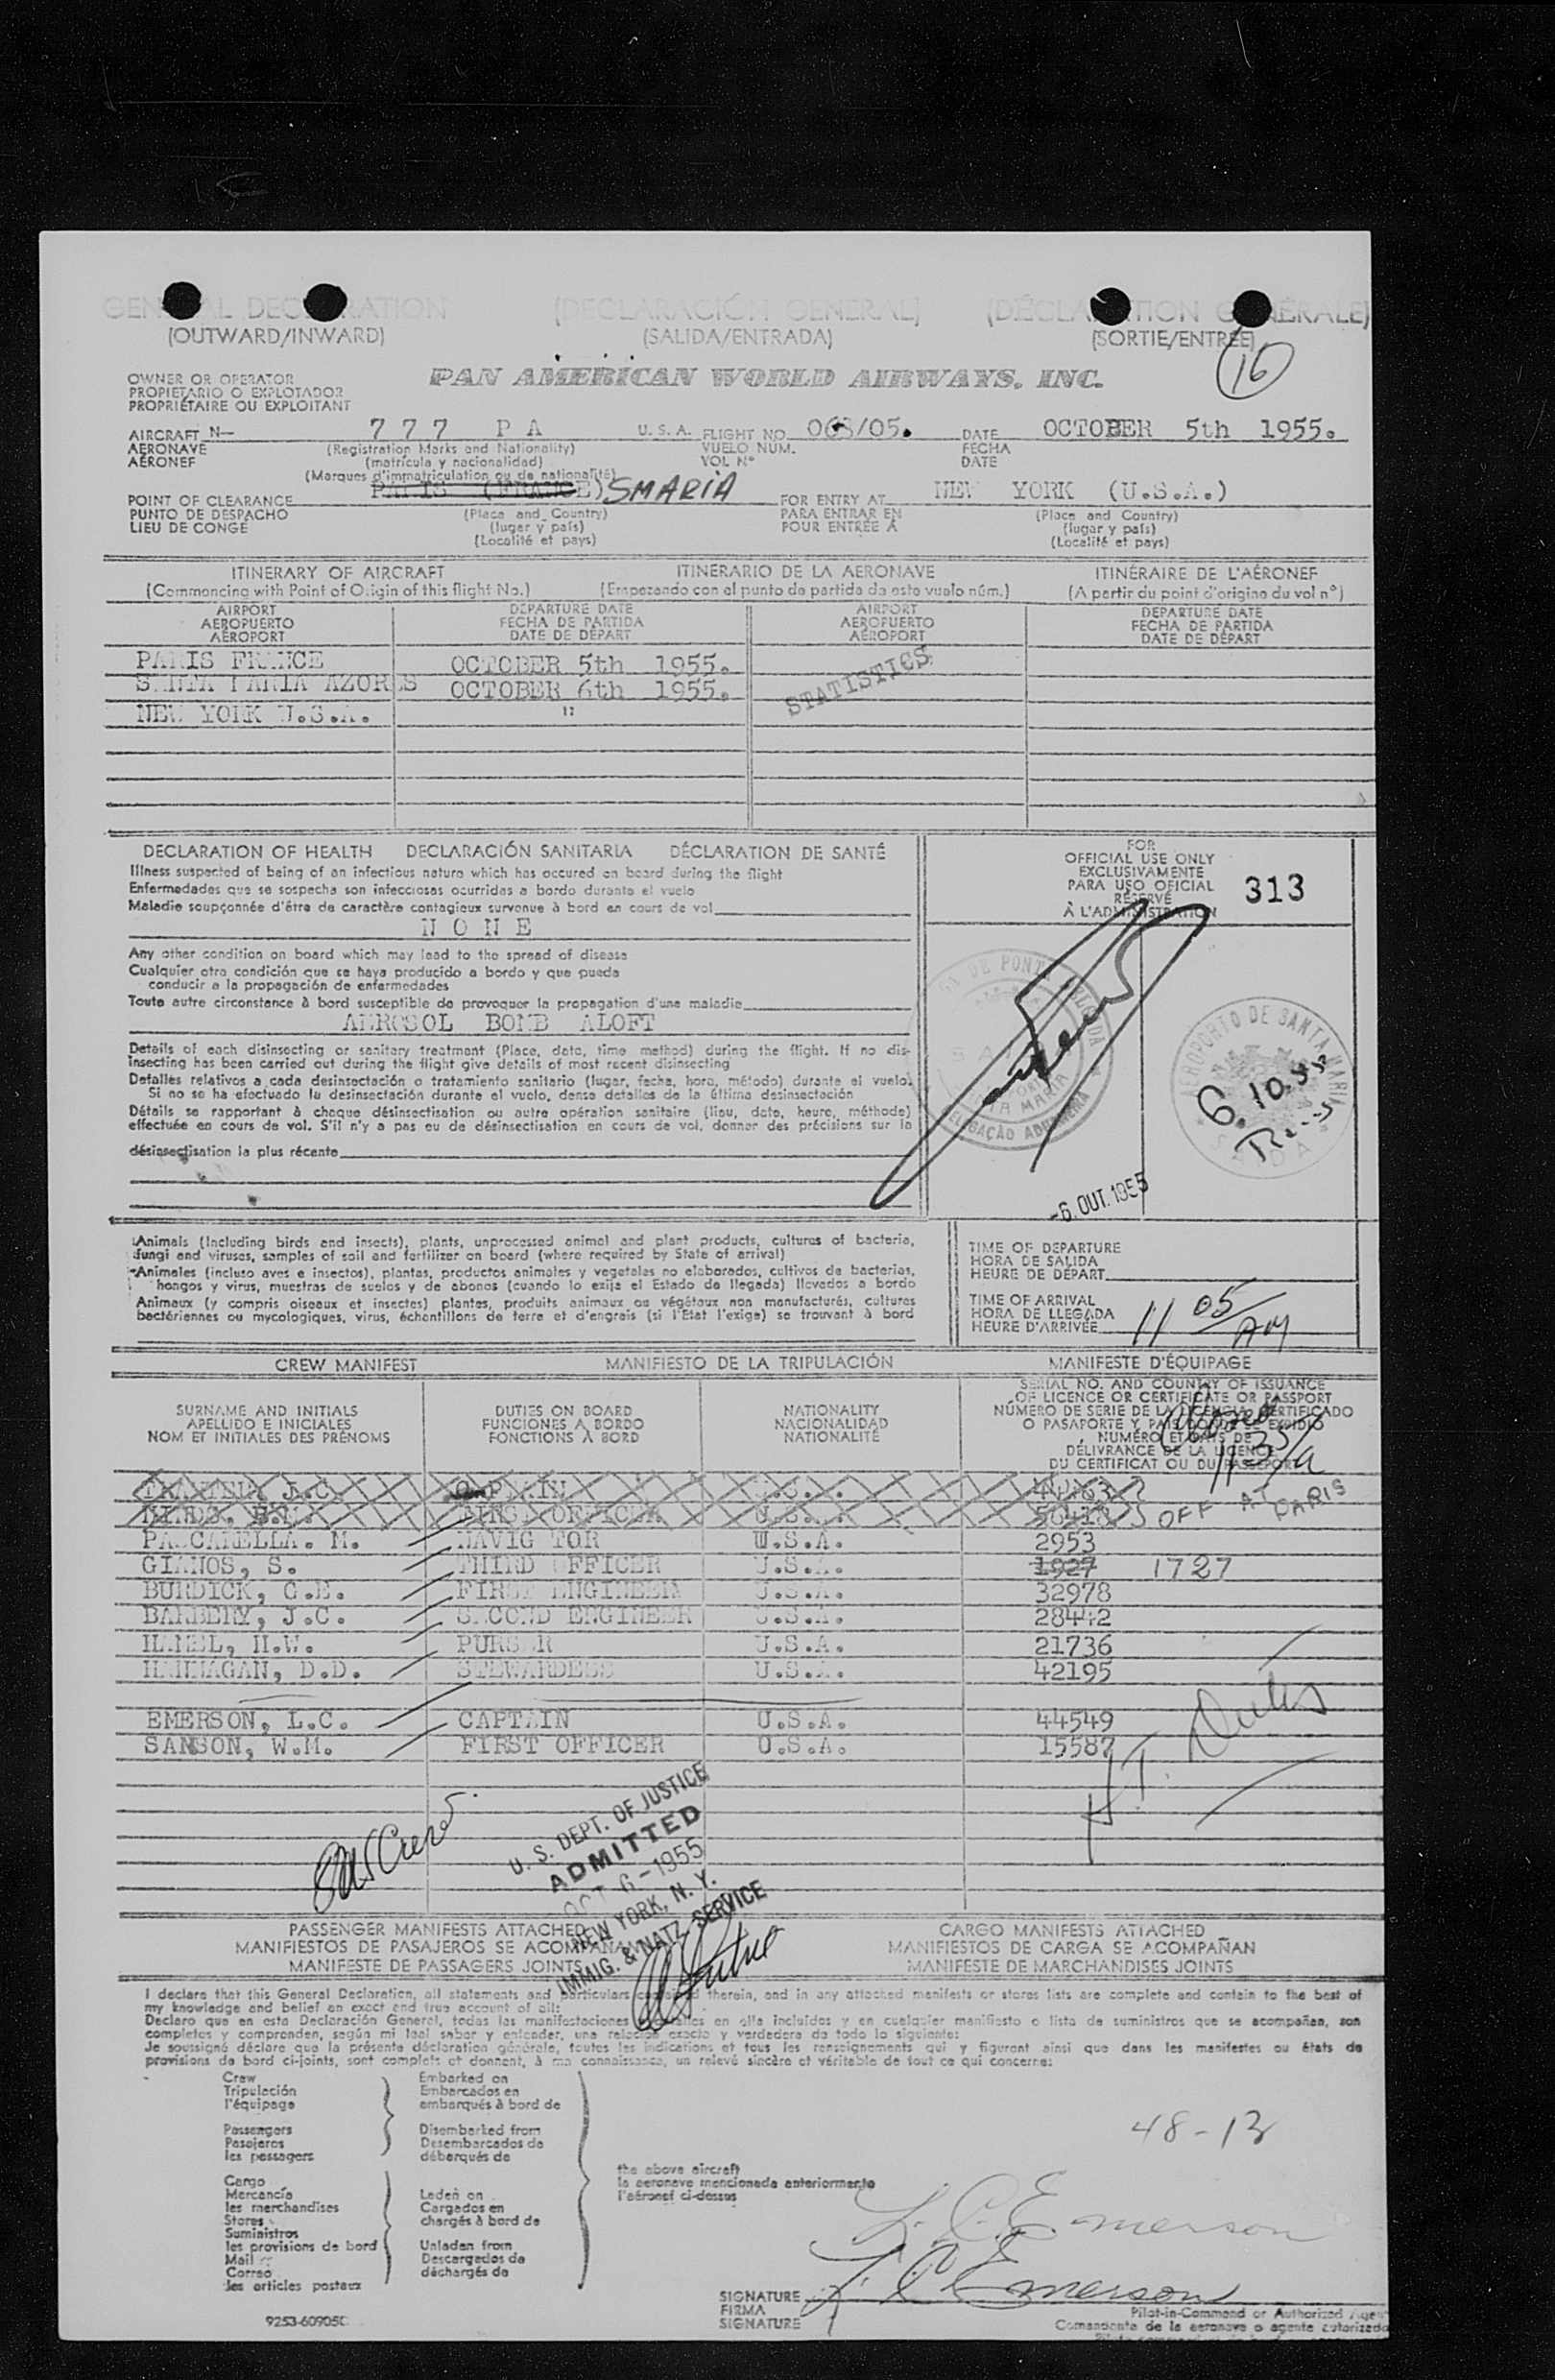 GENERAL DECLARATION (DECLARACIÓN GENERAL) (DÉCLARATION GÉNÉRALE)
(OUTWARD/INWARD) (SALIDA/ENTRADA) (SORTIE/ENTRÉE)
16
OWNER OR OPERATOR PAN AMERICAN WORLD AIRWAYS, INC.
PROPIETARIO O EXPLOTADOR
PROPRIÉTAIRE OU EXPLOITANT
AIRCRAFT N- 777 PA U.S.A. FLIGHT NO. /05. DATE OCTOBER 5th 1955.
AERONAVE (Registration Marks and Nationality) VUELO NUM. FECHA
AÉRONEF (matrícula y nacionalidad) VOL Nº DATE
(Marques d'immatriculation ou de nationalité)
PARIS (FRANCE) SMARIA
POINT OF CLEARANCE FOR ENTRY AT NEW YORK (U.S.A.)
PUNTO DE DESPACHO (Place and Country) PARA ENTRAR EN (Place and Country)
LIEU DE CONGÉ (lugar y país) POUR ENTRÉE À (lugar y país)
(Localité et pays) (Localité et pays)
ITINERARY OF AIRCRAFT ITINERARIO DE LA AERONAVE ITINÉRAIRE DE L'AÉRONEF
(Commencing with Point of Origin of this flight No.) (Empezando con el punto de partida de este vuelo núm.) (A partir du point d'origine du vol nº)
AIRPORT DEPARTURE DATE AIRPORT DEPARTURE DATE
AEROPUERTO FECHA DE PARTIDA AEROPUERTO FECHA DE PARTIDA
AÉROPORT DATE DE DÉPART AÉROPORT DATE DE DÉPART
PARIS FRANCE OCTOBER 5th 1955.
SANTA MARIA AZORES OCTOBER 6th 1955.
NEW YORK U.S.A. "
STATISTICS
DECLARATION OF HEALTH DECLARACIÓN SANITARIA DÉCLARATION DE SANTÉ
Illness suspected of being of an infectious nature which has occured on board during the flight
Enfermedades que se sospecha son infecciosas ocurridas a bordo durante el vuelo
Maladie soupçonnée d'être de caractère contagieux survenue à bord en cours de vol
NONE
Any other condition on board which may lead to the spread of disease
Cualquier otra condición que se haya producido a bordo y que pueda
conducir a la propagación de enfermedades
Toute autre circonstance à bord susceptible de provoquer la propagation d'une maladie
AEROSOL BOMB ALOFT
Details of each disinsecting or sanitary treatment (Place, date, time method) during the flight. If no dis-
insecting has been carried out during the flight give details of most recent disinsecting
Detalles relativos a cada desinsectación o tratamiento sanitario (lugar, fecha, hora, método) durante el vuelo.
Si no se ha efectuado la desinsectación durante el vuelo, dense detalles de la última desinsectación
Détails se rapportant à chaque désinsectisation ou autre opération sanitaire (lieu, date, heure, méthode)
effectuée en cours de vol. S'il n'y a pas eu de désinsectisation en cours de vol, donner des précisions sur la
désinsectisation la plus récente
FOR
OFFICIAL USE ONLY
EXCLUSIVAMENTE
PARA USO OFICIAL
RÉSERVÉ
À L'ADMINISTRATION
313
DE PONTA DELGADA
SANTA MARIA
DELEGAÇÃO ADUANEIRA
AEROPORTO DE SANTA MARIA
SAIDA
6.10.55
-6.OUT.1955
Animals (Including birds and insects), plants, unprocessed animal and plant products, cultures of bacteria,
fungi and viruses, samples of soil and fertilizer on board (where required by State of arrival)
Animales (incluso aves e insectos), plantas, productos animales y vegetales no elaborados, cultivos de bacterias,
hongos y virus, muestras de suelos y de abonos (cuando lo exija el Estado de llegada) llevados a bordo
Animaux (y compris oiseaux et insectes) plantes, produits animaux ou végétaux non manufacturés, cultures
bactériennes ou mycologiques, virus, échantillons de terre et d'engrais (si l'Etat l'exige) se trouvant à bord
TIME OF DEPARTURE
HORA DE SALIDA
HEURE DE DÉPART
TIME OF ARRIVAL
HORA DE LLEGADA
HEURE D'ARRIVÉE 11 05/AM
CREW MANIFEST MANIFIESTO DE LA TRIPULACIÓN MANIFESTE D'ÉQUIPAGE
SURNAME AND INITIALS DUTIES ON BOARD NATIONALITY
APELLIDO E INICIALES FUNCIONES A BORDO NACIONALIDAD
NOM ET INITIALES DES PRÉNOMS FONCTIONS À BORD NATIONALITÉ
SERIAL NO. AND COUNTRY OF ISSUANCE
OF LICENCE OR CERTIFICATE OR PASSPORT
NÚMERO DE SERIE DE LA LICENCIA, CERTIFICADO
O PASAPORTE Y PAIS DONDE SE EXPIDIÓ
NUMÉRO ET PAYS DE
DÉLIVRANCE DE LA LICENCE
DU CERTIFICAT OU DU PASSEPORT
1135/a
J.C. CAPTAIN
FIRST OFFICER U.S.A. OFF AT PARIS
PASCARELLA. M. NAVIGATOR U.S.A. 2953
GIANOS, S. THIRD OFFICER U.S.A. 1927 1727
BURDICK, C.E. FIRST ENGINEER U.S.A. 32978
BARBERY, J.C. SECOND ENGINEER U.S.A. 28442
HAMEL, H.W. PURSER U.S.A. 21736
HANNAGAN, D.D. STEWARDESS U.S.A. 42195
EMERSON, L.C. CAPTAIN U.S.A. 44549
SAMSON, W.M. FIRST OFFICER U.S.A. 15587
U. S. DEPT. OF JUSTICE
ADMITTED
OCT 6-1955
NEW YORK, N. Y.
IMMIG. & NATZ. SERVICE
PASSENGER MANIFESTS ATTACHED CARGO MANIFESTS ATTACHED
MANIFIESTOS DE PASAJEROS SE ACOMPAÑAN MANIFIESTOS DE CARGA SE ACOMPAÑAN
MANIFESTE DE PASSAGERS JOINTS MANIFESTE DE MARCHANDISES JOINTS
I declare that this General Declaration, all statements and particulars contained therein, and in any attached manifests or stores lists are complete and contain to the best of
my knowledge and belief an exact and true account of all:
Declaro que en esta Declaración General, todas las manifestaciones y detalles en ella incluidos y en cualquier manifiesto o lista de suministros que se acompañan, son
completos y comprenden, según mi leal saber y entender, una relación exacta y verdadera de todo lo siguiente:
Je soussigné déclare que la présente déclaration générale, toutes les indications et tous les renseignements qui y figurent ainsi que dans les manifestes ou états de
provisions de bord ci-joints, sont complets et donnent, à ma connaissance, un relevé sincère et véritable de tout ce qui concerne:
Crew Embarked on
Tripulación Embarcados en
l'équipage embarqués à bord de
Passengers Disembarked from
Pasajeros Desembarcados de
les passagers débarqués de
the above aircraft
la aeronave mencionada anteriormente
l'aéronef ci-dessus
Cargo
Mercancía Laden on
les marchandises Cargados en
Stores chargés à bord de
Suministros
les provisions de bord Unladen from
Mail Descargados de
Correo déchargés de
les articles postaux
48-13
L. C. Emerson
SIGNATURE L C Emerson
FIRMA Pilot-in-Command or Authorized Agent
SIGNATURE Comandante de la aeronave o agente autorizado
9253-60905C